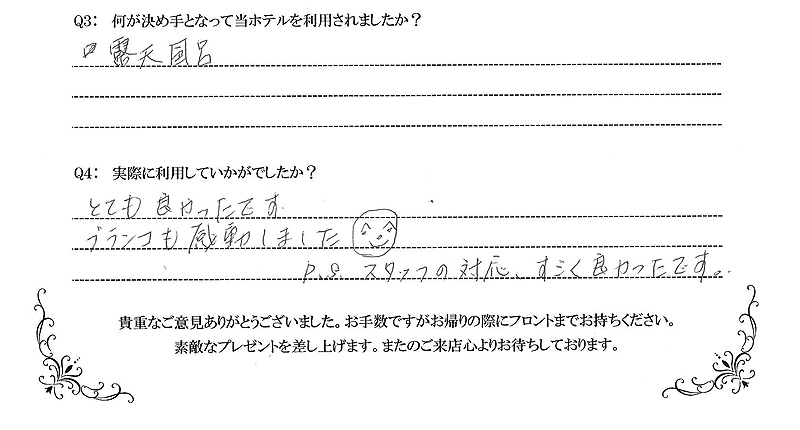 Q3: 何が決め手となって当ホテルを利用されましたか?
露天風呂
Q4: 実際に利用していかがでしたか?
とても良かったです
ブランコも感動しました
P.S. スタッフの対応、すごく良かったです。
貴重なご意見ありがとうございました。お手数ですがお帰りの際にフロントまでお持ちください。
素敵なプレゼントを差し上げます。またのご来店心よりお待ちしております。